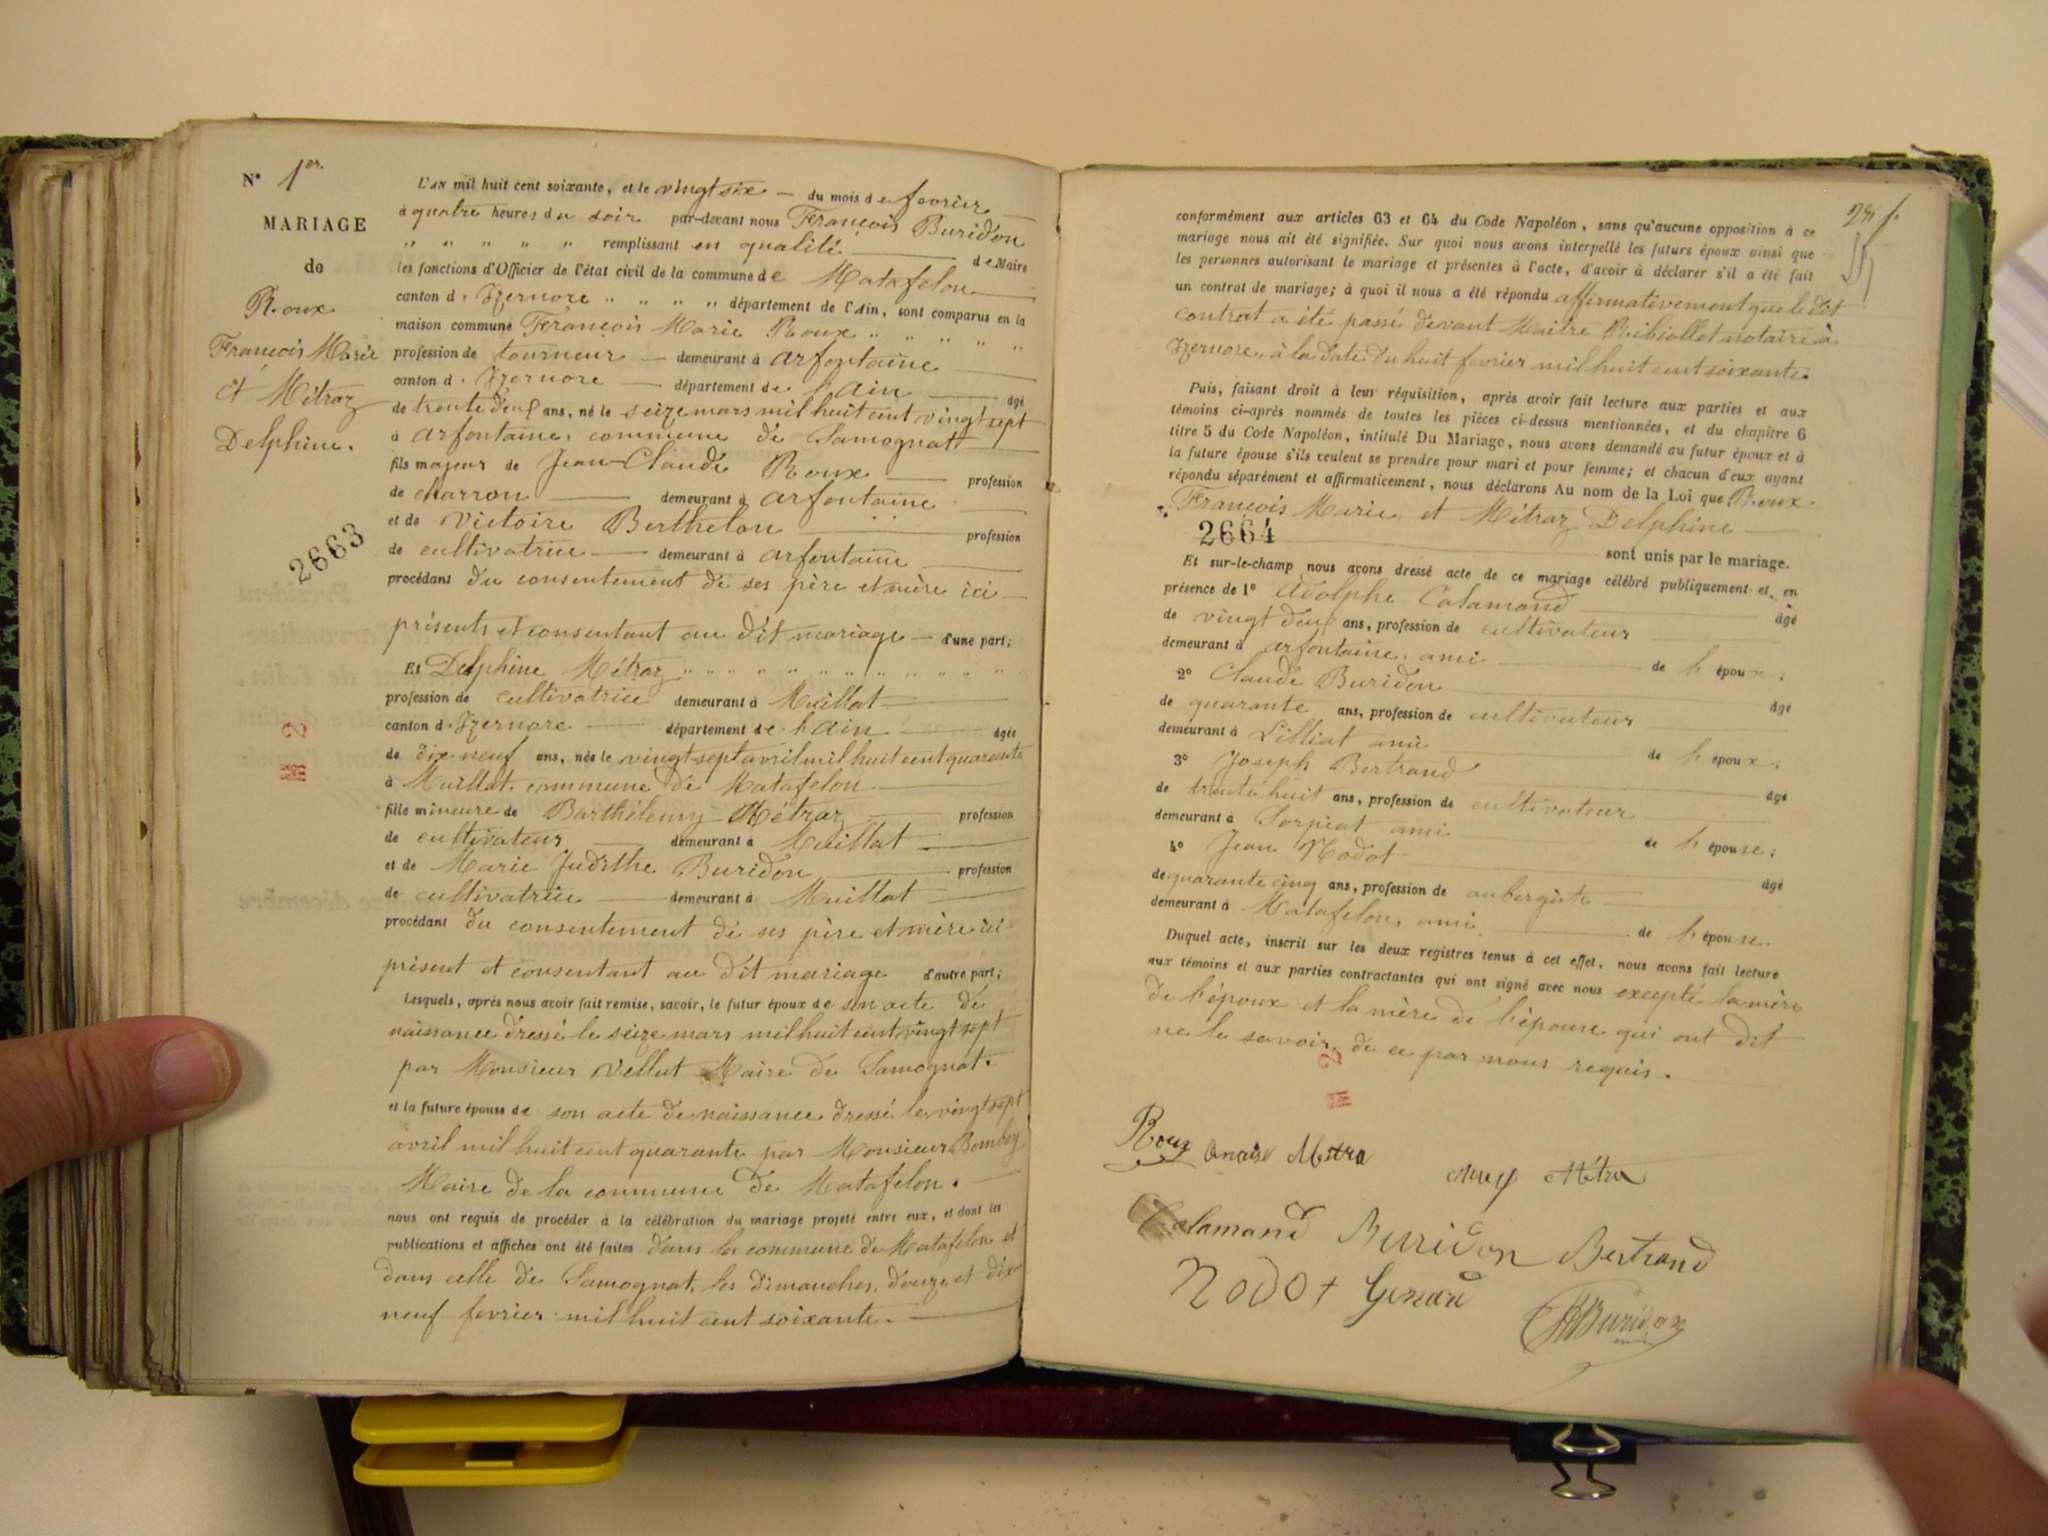 N° 1er
MARIAGE
de
Roux
François Marie
et Métraz
Delphine.
2663
L'AN mil huit cent soixante, et le vingt six du mois de fevrier
à quatre heures du soir par-devant nous François Buridon
" " " " " remplissant en qualité de Maire
les fonctions d'Officier de l'état civil de la commune de Matafelon
canton d. Izernore " " " " département de l'Ain, sont comparus en la
maison commune François Marie Roux " " " " "
profession de tourneur demeurant à arfontaine
canton d. Izernore département de l'Ain âgé
de trente deux ans, né le seize mars mil huit cent vingt sept
à arfontaine, commune de Samognat
fils majeur de Jean-Claude Roux profession
de charron demeurant à arfontaine
et de Victoire Berthelon profession
de cultivatrice demeurant à arfontaine
procédant du consentement de ses père et mère ici
présents et consentant au dit mariage d'une part;
Et Delphine Métraz " " " " " " " " " " "
profession de cultivatrice demeurant à Muillat
canton d. Izernore département de l'Ain âgée
de dix neuf ans, née le vingt sept avril mil huit cent quarante
à Muillat, commune de Matafelon
fille mineure de Barthélemy Métraz profession
de cultivateur demeurant à Muillat
et de Marie Judithe Buridon profession
de cultivatrice demeurant à Muillat
procédant du consentement de ses père et mère ici
présent et consentant au dit mariage d'autre part;
Lesquels, après nous avoir fait remise, savoir, le futur époux de son acte de
naissance dressé le seize mars mil huit cent vingt sept
par Monsieur Vellut Maire de Samognat.
et la future épouse de son acte de naissance dressé le vingt sept
avril mil huit cent quarante par Monsieur Bomboy
Maire de la commune de Matafelon.
nous ont requis de procéder à la célébration du mariage projeté entre eux, et dont les
publications et affiches ont été faites dans la commune de Matafelon et
dans celle de Samognat, les dimanches, douze et dix
neuf fevrier mil huit cent soixante.
conformément aux articles 63 et 64 du Code Napoléon, sans qu'aucune opposition à ce
mariage nous ait été signifiée. Sur quoi nous avons interpellé les futurs époux ainsi que
les personnes autorisant le mariage et présentes à l'acte, d'avoir à déclarer s'il a été fait
un contrat de mariage; à quoi il nous a été répondu affirmativement que le dit
contrat a été passé devant Maitre notaire à
Izernore, à la date du huit fevrier mil huit cent soixante.
Puis, faisant droit à leur réquisition, après avoir fait lecture aux parties et aux
témoins ci-après nommés de toutes les pièces ci-dessus mentionnées, et du chapitre 6
titre 5 du Code Napoléon, intitulé Du Mariage, nous avons demandé au futur époux et à
la future épouse s'ils veulent se prendre pour mari et pour femme; et chacun d'eux ayant
répondu séparément et affirmativement, nous déclarons Au nom de la Loi que Roux
François Marie, et Métraz Delphine
2664
sont unis par le mariage.
Et sur-le-champ nous avons dressé acte de ce mariage célébré publiquement et en
présence de 1° Adolphe Calamand âgé
de vingt deux ans, profession de cultivateur
demeurant à arfontaine, ami de l'époux;
2° Claude Buridon âgé
de quarante ans, profession de cultivateur
demeurant à Lilliat ami de l'époux;
3° Joseph Bertrand âgé
de trente huit ans, profession de cultivateur
demeurant à Sorpiat ami de l'épouse;
4° Jean Nodot âgé
de quarante cinq ans, profession de aubergiste
demeurant à Matafelon, ami de l'épouse.
Duquel acte, inscrit sur les deux registres tenus à cet effet, nous avons fait lecture
aux témoins et aux parties contractantes qui ont signé avec nous excepté la mère
de l'époux et la mère de l'épouse qui ont dit
ne le savoir, de ce par nous requis.
Roux Métra
Métra
Calamand Buridon Bertrand
Nodot
Buridon